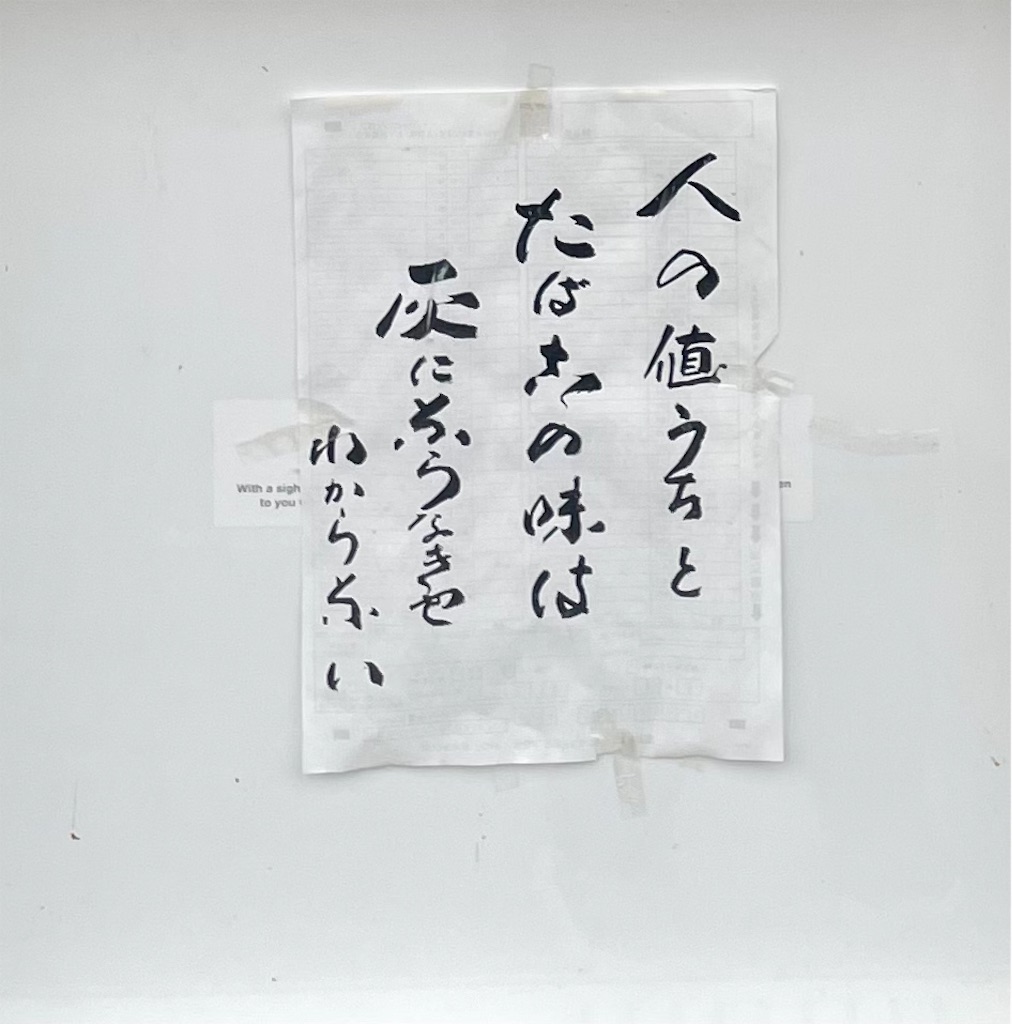 人の値うちと
たばこの味は
灰にならなきや
わからない
With a sigh
to you
en